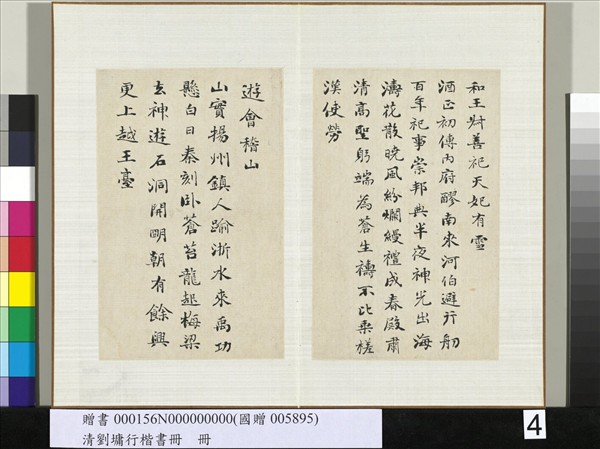 和王尉善祀天妃有雪
酒正初傳内府醪南來河伯避行舠
百年祀事崇邦典半夜神光出海
濤花散曉風紛爛縵禮成春殿肅
清高聖躬端為蒼生禱不比乘槎
漢使勞
遊會稽山
山實揚州鎮人踰浙水來禹功
懸白日秦刻卧蒼苔龍起梅梁
去神遊石洞開明朝有餘興
更上越王臺
贈書 000156N000000000(國贈 005895)
清劉墉行楷書冊　冊
4